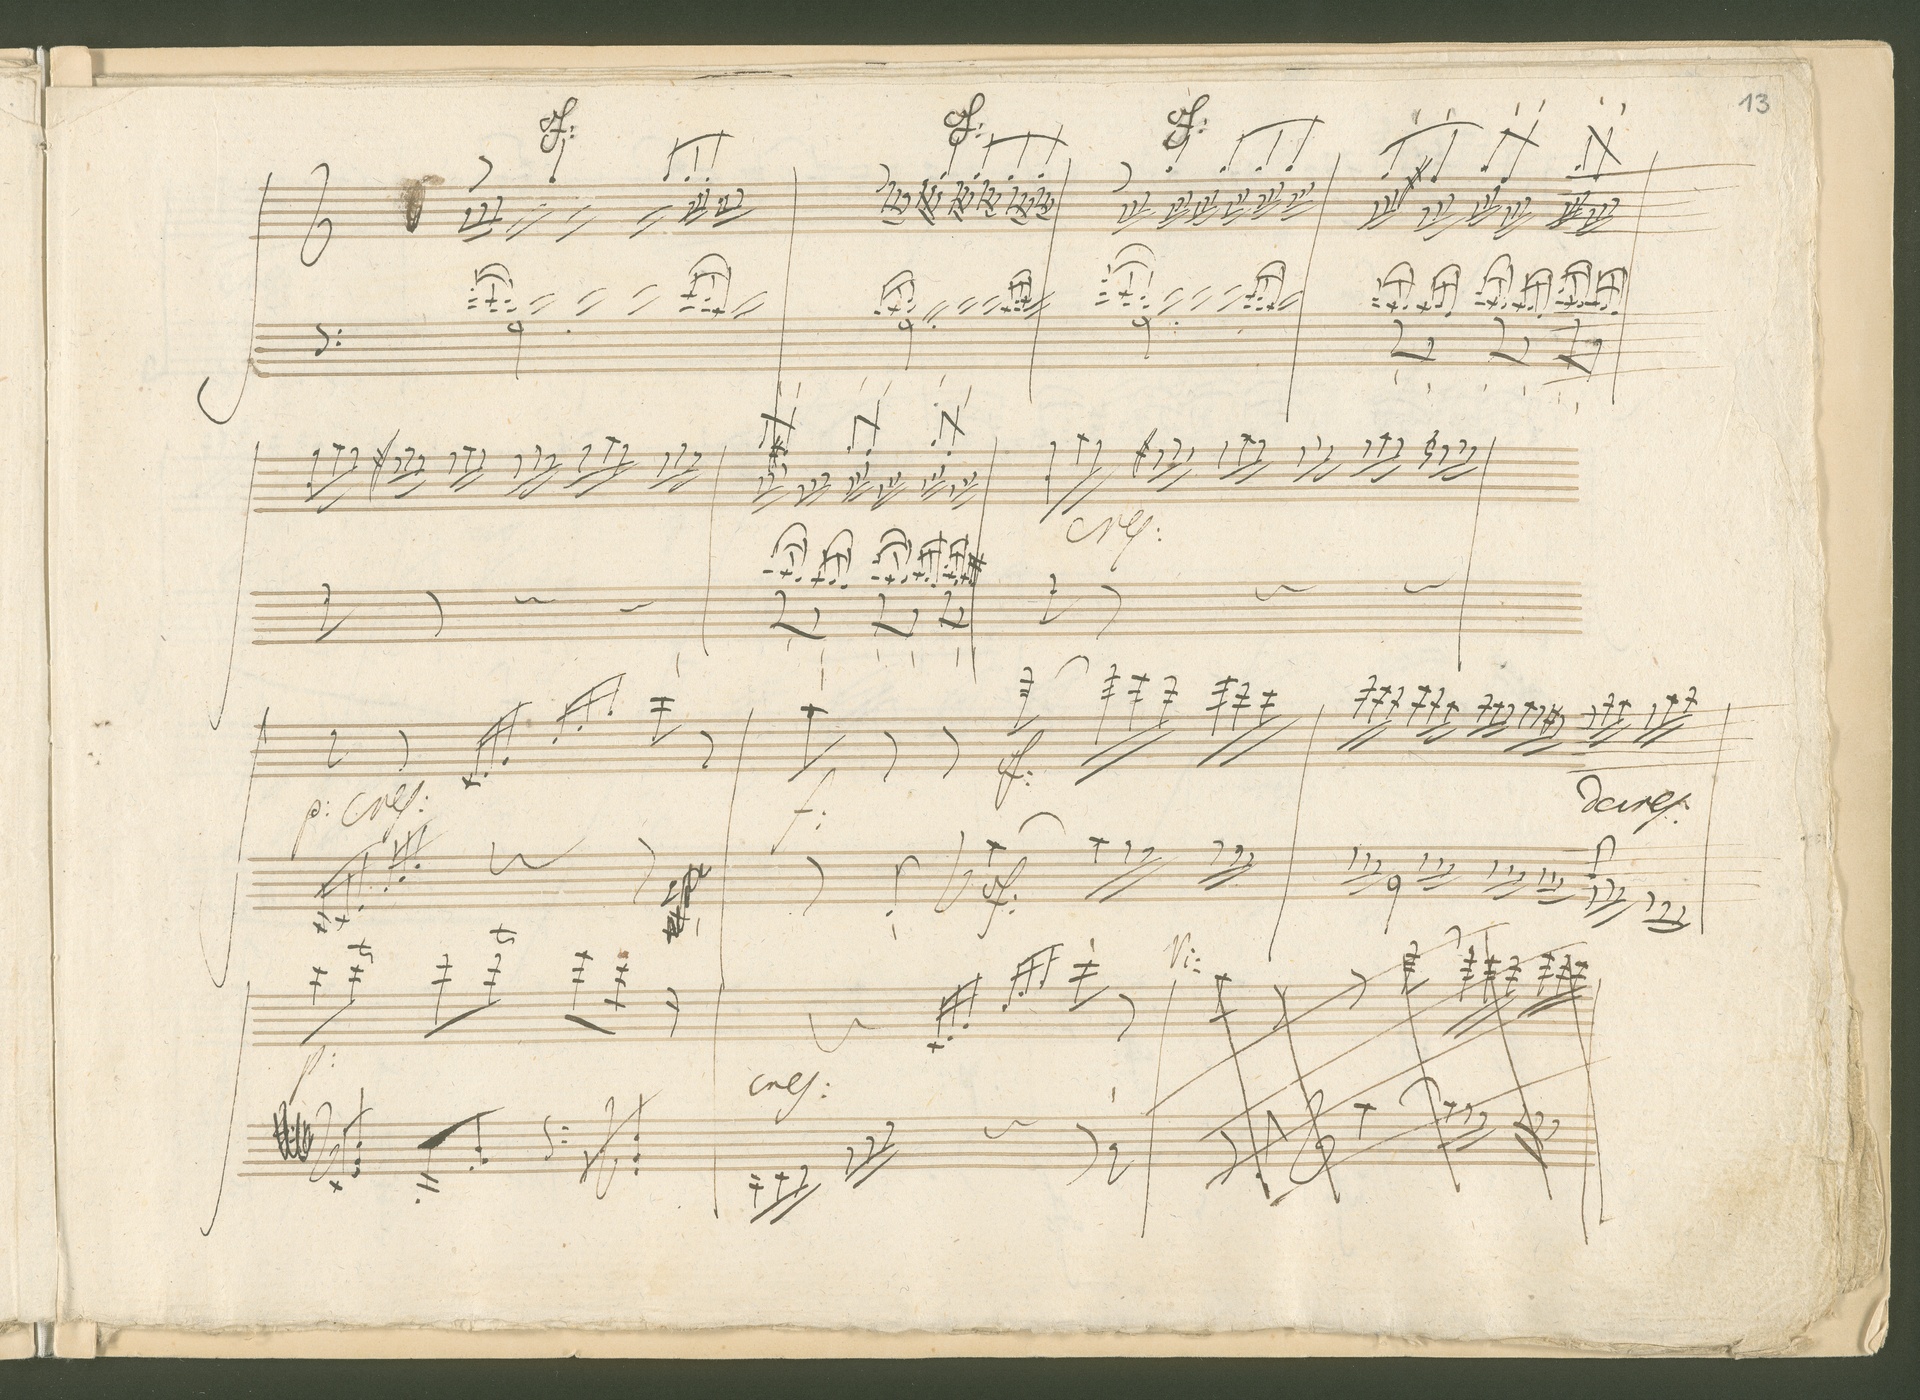 13
sf: sf: sf:
cresc:
p: cresc: f: sf: decresc:
sf:
Vi:
p: cresc: